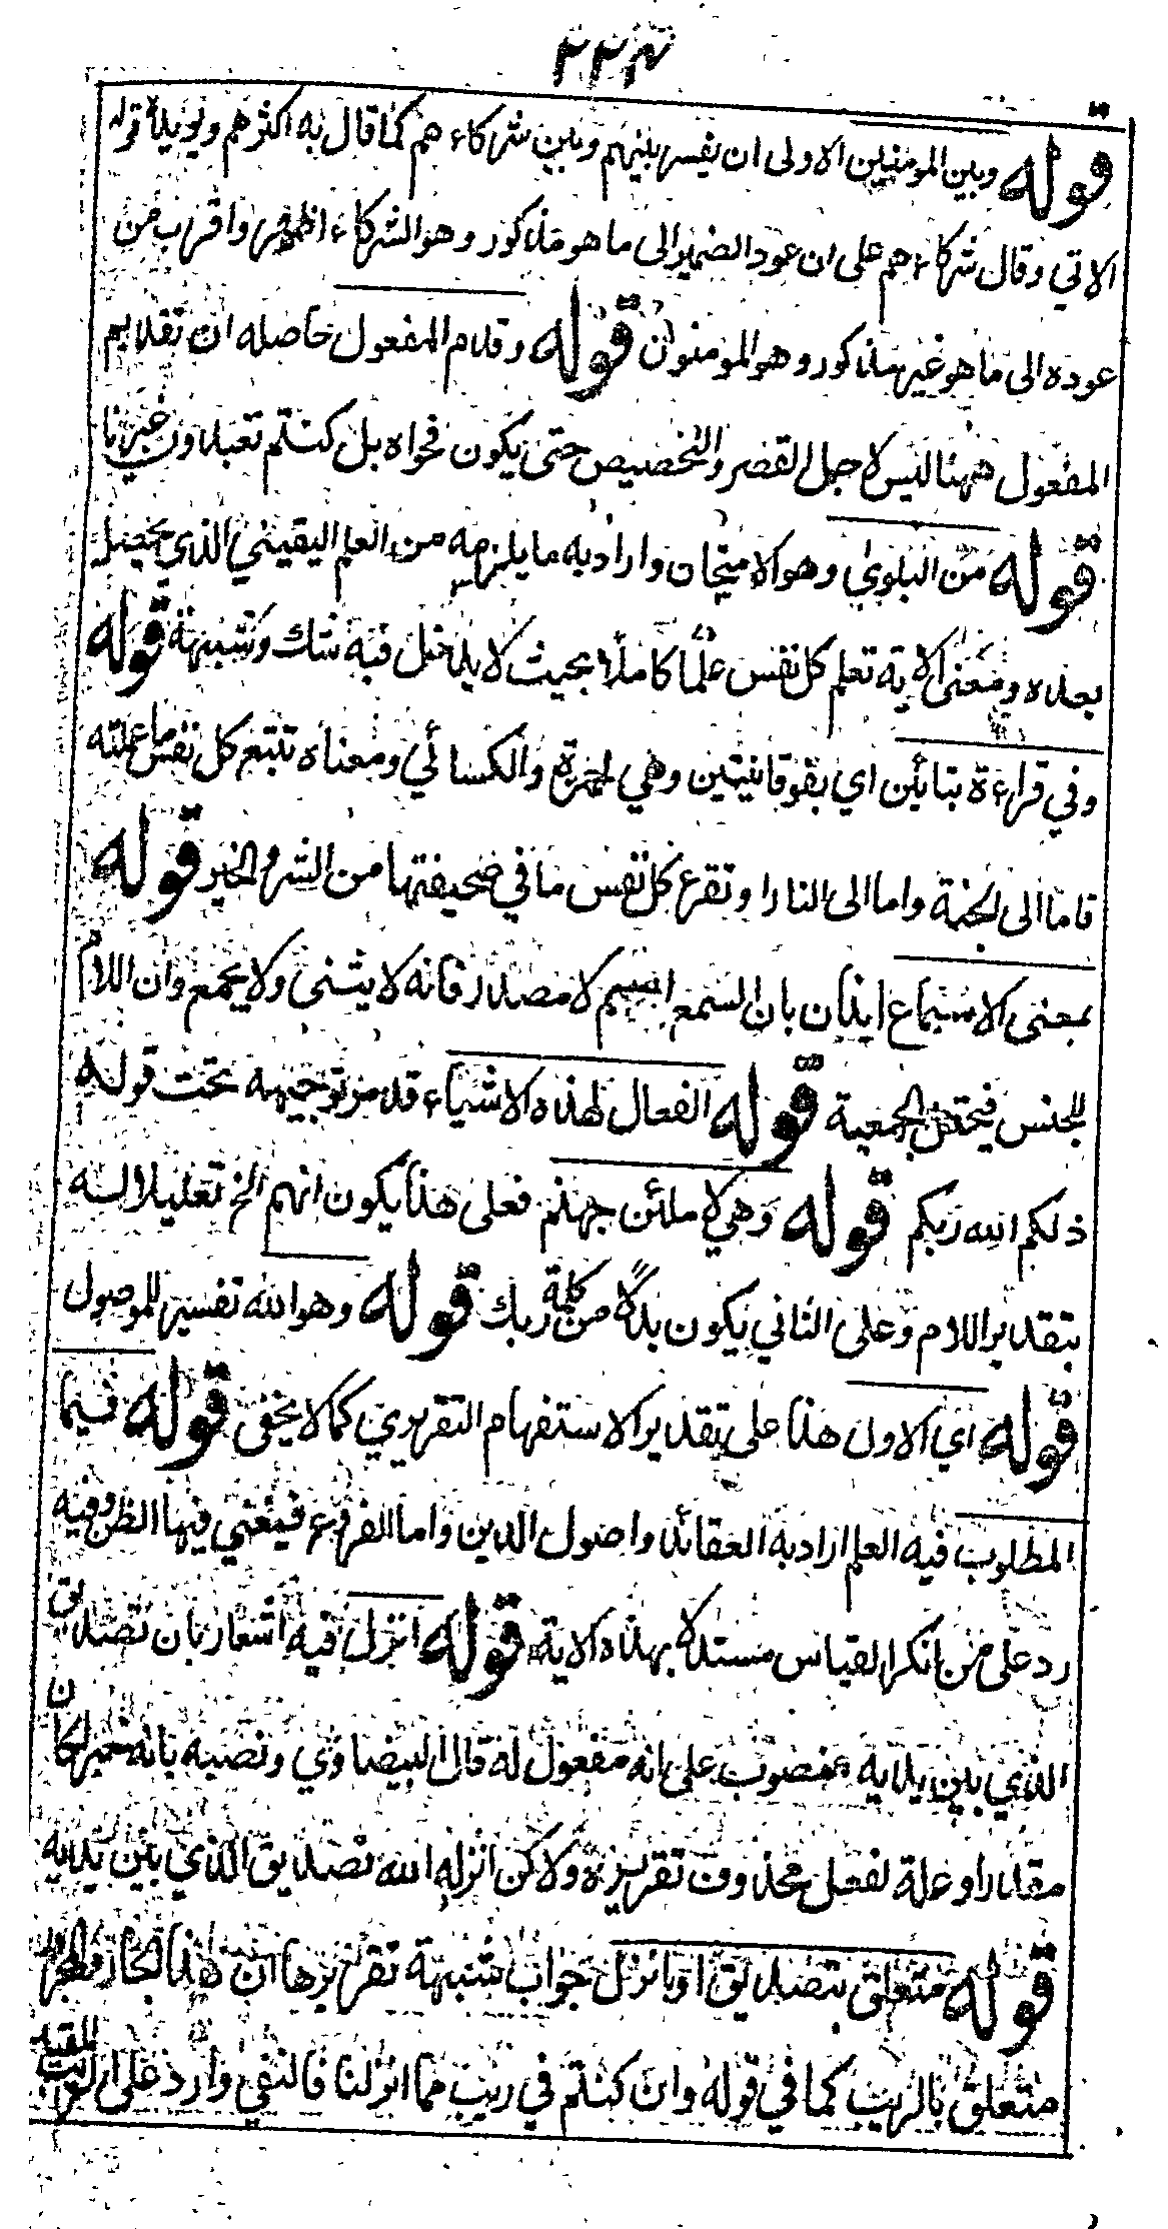 ٢٢٤
قوله وبين المومنين الاولى ان يفسر بينهم وبين شركاءهم كما قال به اكثرهم ويويده قوله
الاتي وقال شركاءهم على ان عود الضمير الى ما هو مذكور وهو الشركاء اظهر واقرب من
عوده الى ما هو غير مذكور وهو المومنون قوله وقدم المفعول حاصله ان تقديم
المفعول ههنا ليس لاجل القصر والتخصيص حتى يكون فحواه بل كنتم تعبدون غيرنا
قوله من البلوي وهو الامتحان واراد به ما يلزمه من العلم اليقيني الذي يحصل
بعده ومعنى الاية تعلم كل نفس علما كاملا بحيث لا يدخل فيه شك وشبهة قوله
وفي قراءة بتائين اي بفوقانيتين وهي لحمزة والكسائي ومعناه تتبع كل نفس ما عملته
فاما الى الجنة واما الى النار او تقرء كل نفس ما في صحيفتها من الشر والخير قوله
بمعنى الاستماع ايذان بان السمع اسم لا مصدر فانه لا يثنى ولا يجمع وان اللام
للجنس فيحتمل الجمعية قوله الفعال لهذه الاشياء قد مر توجيهه تحت قوله
ذلكم الله ربكم قوله وهي لاملئن جهنم فعلى هذا يكون انهم الخ تعليلا له
بتقدير اللام وعلى الثاني يكون بدلا من كلمة ربك قوله وهو الله تفسير للموصول
قوله اي الاول هذا على تقدير الاستفهام التقريري كما لا يخفى قوله فيما
المطلوب فيه العلم اراد به العقائد واصول الدين واما الفروع فيغني فيها الظن وفيه
رد على من انكر القياس مستدلا بهذه الاية قوله انزل فيه اشعار بان تصديق
الذي بين يديه منصوب على انه مفعول له قال البيضاوي ونصبه بانه خبر لكان
مقدرا او علة لفعل محذوف تقريره ولاكن انزله الله تصديق الذي بين يديه
قوله متعلق بتصديق او بانزل جواب شبهة تقريرها ان هذا الجار والمجرور
متعلق بالريب كما في قوله وان كنتم في ريب مما انزلنا فالنفي وارد على الريب المقيد